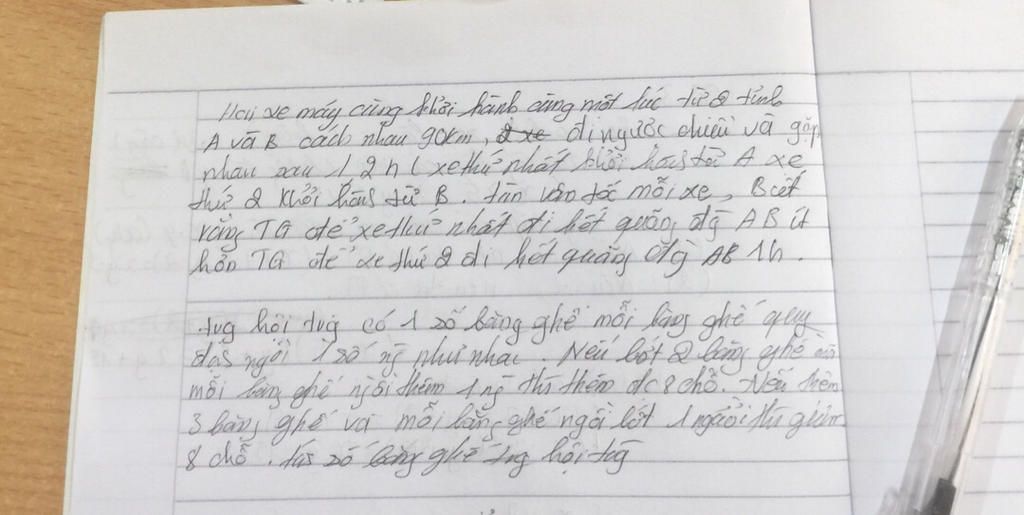 Hai xe máy cùng khởi hành cùng một lúc từ 2 tỉnh
A và B cách nhau 90km, 2 xe đi ngược chiều và gặp
nhau sau 1 2h (xe thứ nhất khởi hàns từ A xe
thứ 2 khởi hàns từ B. tìn vận tốc mỗi xe, Biết
rằng TG để xe thứ nhất đi hết quãng đg AB ít
hơn TG để xe thứ 2 đi hết quãng đg AB 1h.
tug hội tug có 1 số băng ghế mỗi băng ghế quy
ngồi 1 số ng như nhau. Nếu bớt 2 băng ghế
mỗi băng ghế ngồi thêm 1 ng thì thêm đc 8 chỗ. Nếu thêm
3 băng ghế và mỗi băng ghế ngồi bớt 1 người thì giảm
8 chỗ. số băng ghế tug hội tug